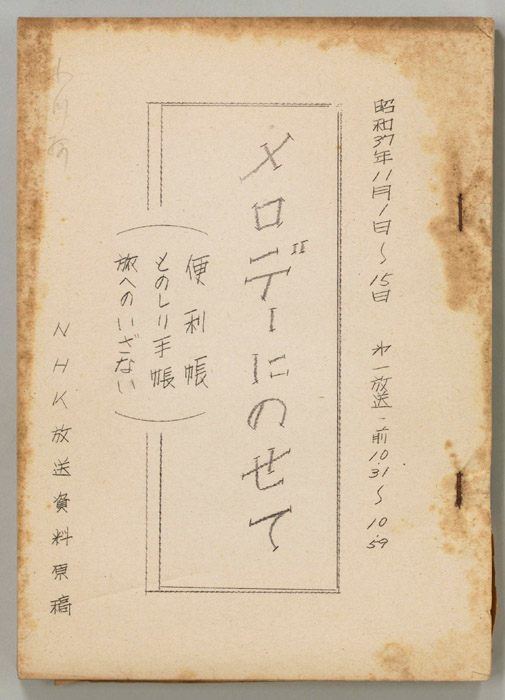 昭和37年11月1日〜15日 第一放送・前10.31〜10.59
メロデーにのせて
便利帳
ものしり手帳
旅へのいざない
NHK放送資料原稿